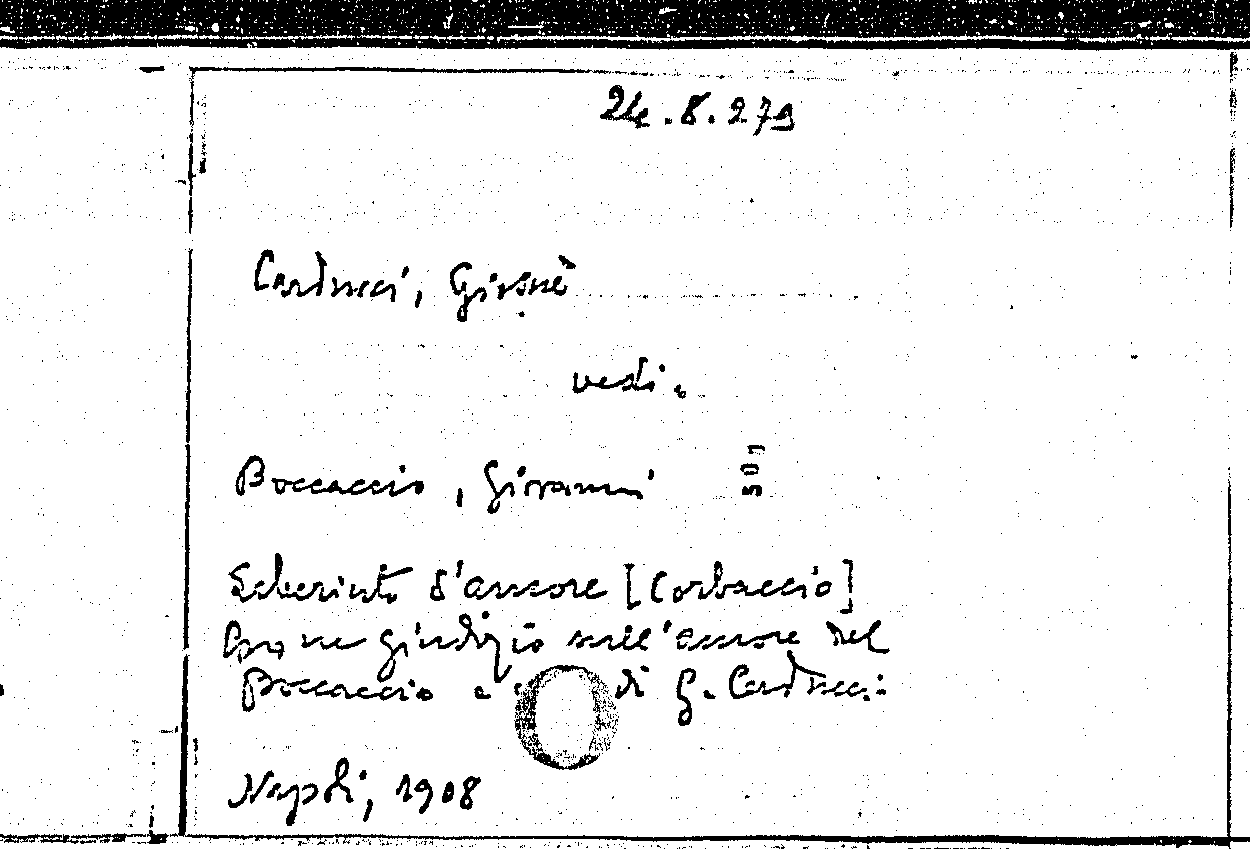 24.8.279
Carducci, Giosuè
vedi.
Boccaccio, Giovanni
509
Laberinto d'amore [Corbaccio]
giudizio sull'amore del
Boccaccio a di G. Carducci:
Napoli, 1908